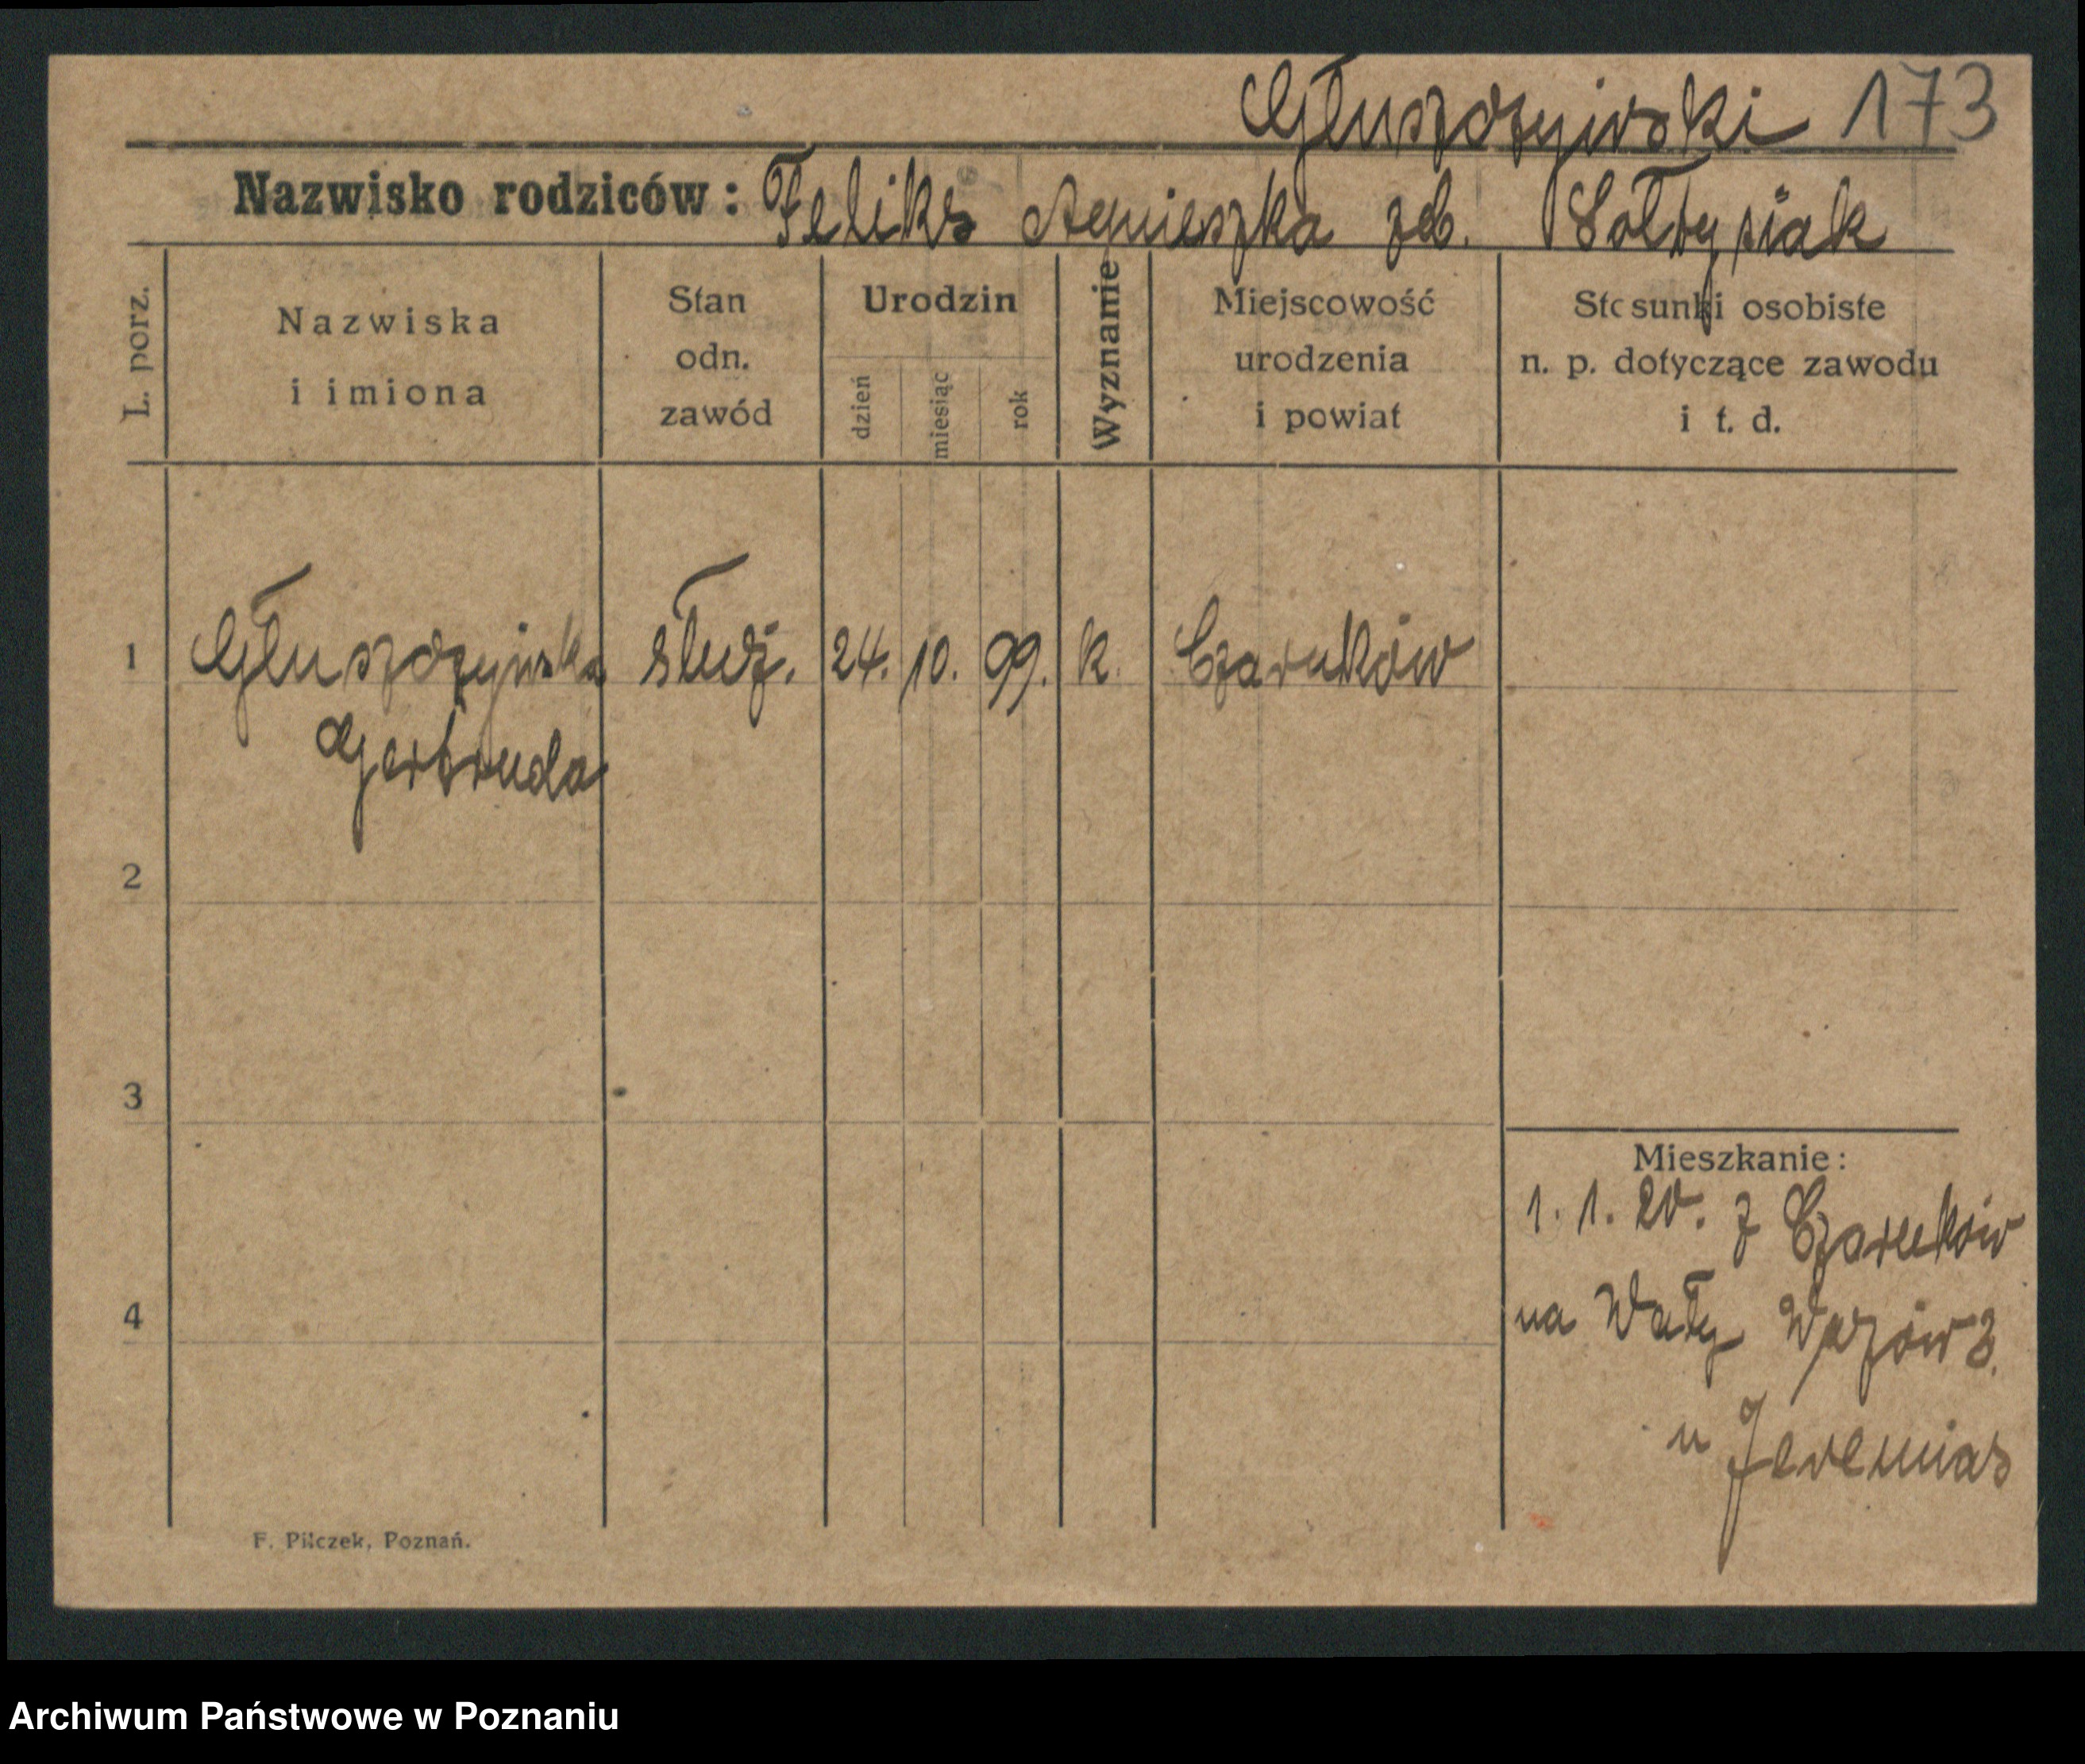 Głuszczyński 173
Nazwisko rodziców: Feliks Agnieszka zd. Sołtysiak
L. porz.
Nazwiska
i imiona
Stan
odn.
zawód
Urodzin
dzień
miesiąc
rok
Wyznanie
Miejscowość
urodzenia
i powiat
Stosunki osobiste
n. p. dotyczące zawodu
i t. d.
1 służ. 24. 10. 99. k. Czarnków
Gertruda
2
3
4
Mieszkanie:
1. 1. 20. z Czarnków
na Wały Wazów 3.
u Jeremias
F. Pilczek, Poznań.
Archiwum Państwowe w Poznaniu